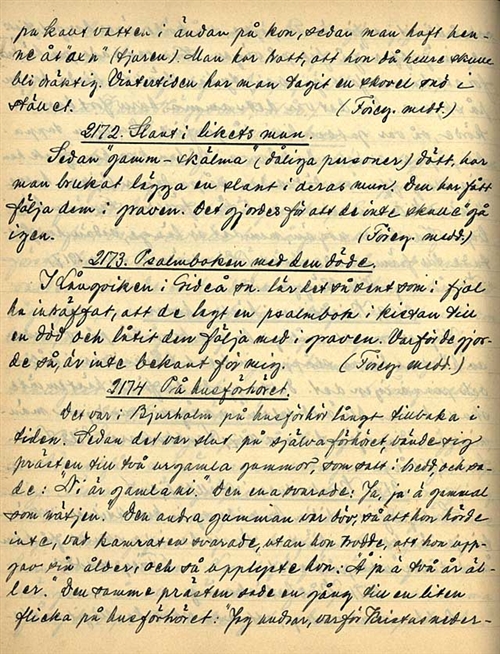 på kont vatten i ändan på kon, sedan man haft hen-
ne åt "oxn" (tjuren). Man har trott, att hon då heure skulle
bli dräktig. Vintertiden har man tagit en skovel snö i
stället. (Föreg. medd.)
2172. Slant i likets mun.
Sedan "gamm-skälma" (dåliga personer) dött, har
man brukat lägga en slant i deras mun. Den har fått
följa dem i graven. Det gjordes för att de inte skulle "gå
igen. (Föreg. medd.)
2173. Psalmboken med den döde.
I Långviken i Gideå sn. lär det så sent som i fjol
ha inträffat, att de lagt en psalmbok i kistan till
en död och låtit den följa med i graven. Varför de gjor-
de så, är inte bekant för mig. (Föreg. medd.)
2174 På husförhöret.
Det var i Bjurholm på husförhör långt tillbaka i
tiden. Sedan det var slut på själva förhöret, vände sig
prästen till två urgamla gummor, som satt i bredd, och sa-
de: "Ni är gamla ni." Den ena svarade: "Ja, ja' ä gammal
som nätjen." Den andra gumman var döv, så att hon hörde
inte, vad kamraten svarade, utan hon trodde, att hon upp-
gav sin ålder, och så upplyste hon: "Å ja ä två år äl-
ler." Den samme prästen sade en gång till en liten
flicka på husförhöret: "Jag undrar, varför Kristus neder-